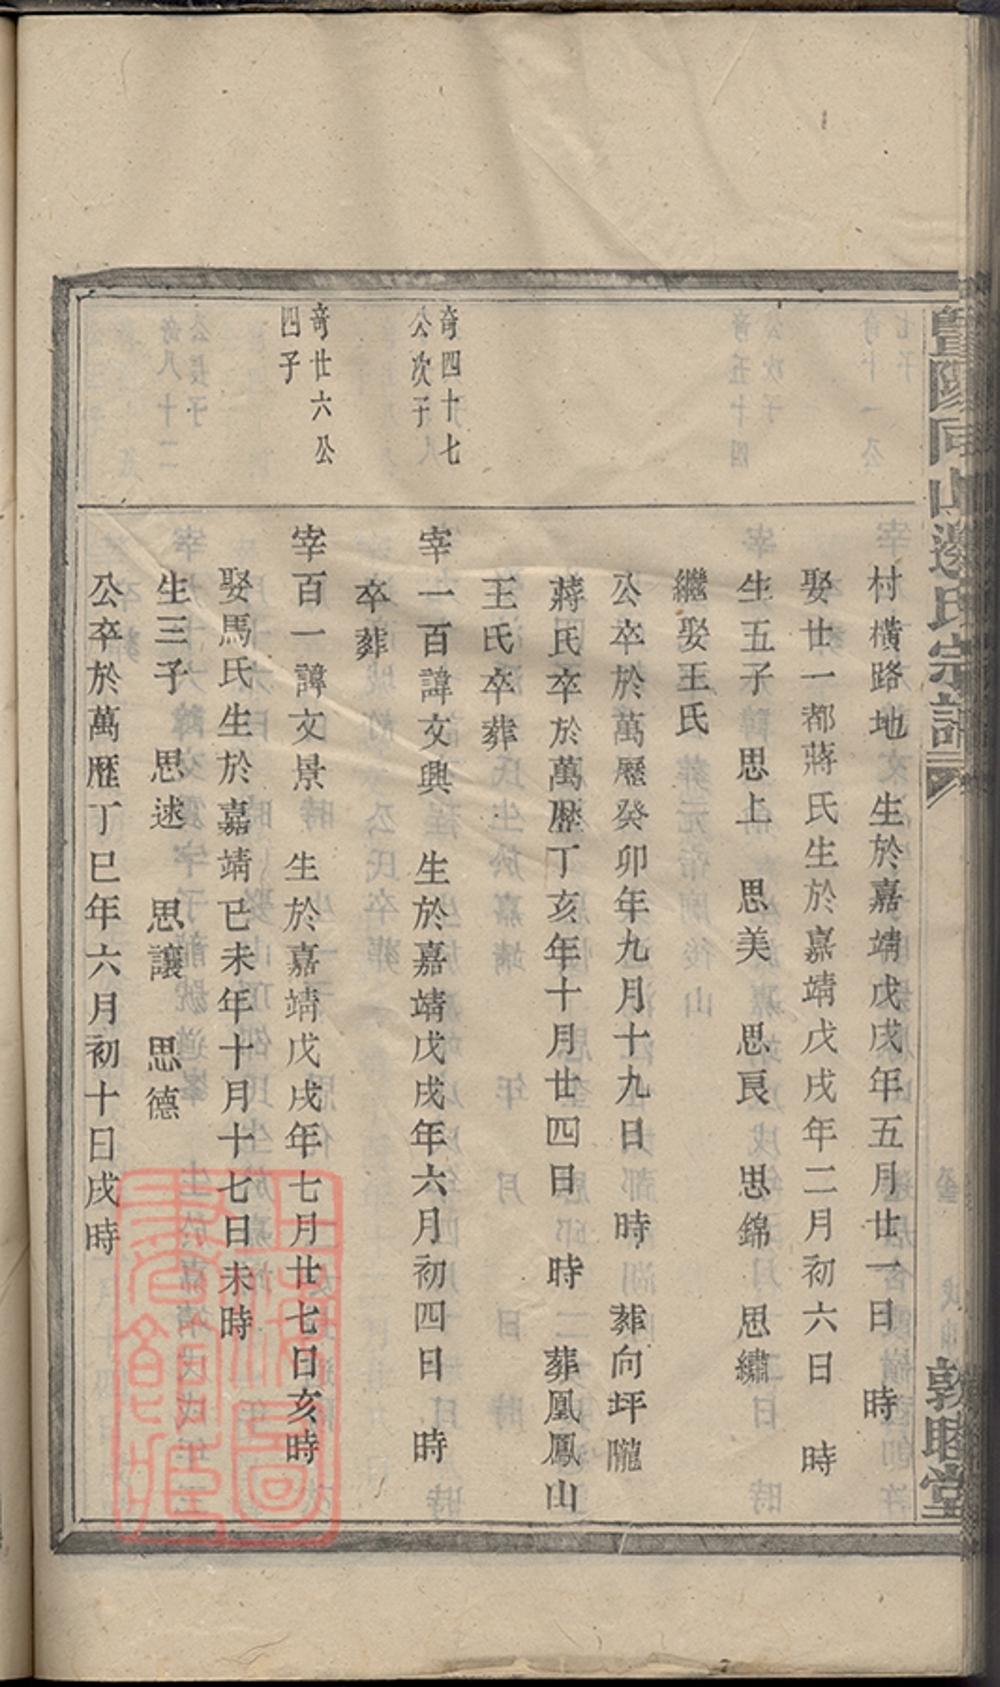 暨陽同山邊氏宗譜
敦睦堂
村橫路地 生於嘉靖戊戌年五月廿一日 時
娶廿一都蔣氏生於嘉靖戊戌年二月初六日 時
生五子 思上 思美 思良 思錦 思繡
繼娶王氏
公卒於萬歷癸卯年九月十九日 時 葬向坪隴
蔣氏卒於萬歷丁亥年十月廿四日 時 葬鳳凰山
王氏卒葬
奇四十七
公次子
宰一百諱文興 生於嘉靖戊戌年六月初四日 時
卒葬
奇廿六公
四子
宰百一諱文景 生於嘉靖戊戌年七月廿七日亥時
娶馬氏生於嘉靖己未年十月十七日未時
生三子 思逑 思讓 思德
公卒於萬歷丁巳年六月初十日戌時
上海圖
書館藏